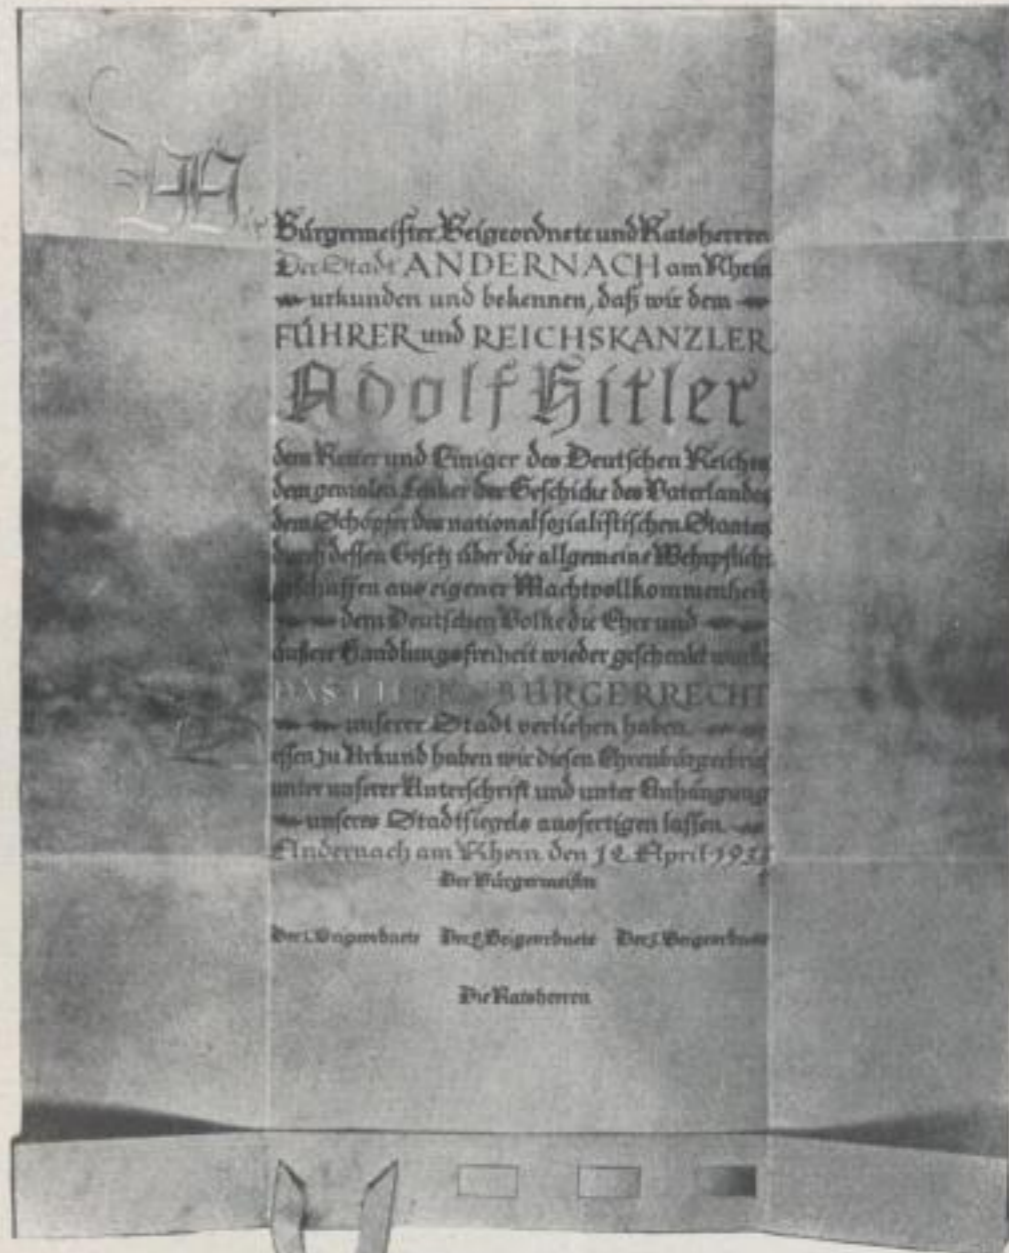 Wir Bürgermeister, Beigeordnete und Ratsherren
Der Stadt ANDERNACH am Rhein
urkunden und bekennen, daß wir dem
FÜHRER und REICHSKANZLER
Adolf Hitler
dem Retter und Einiger des Deutschen Reiches
dem genialen Lenker der Geschicke des Vaterlandes
dem Schöpfer des nationalsozialistischen Staates
durch dessen Gesetz über die allgemeine Wehrpflicht
geschaffen aus eigener Machtvollkommenheit
dem Deutschen Volke die Ehre und
äußere Handlungsfreiheit wieder geschenkt wurde
DAS EHRENBÜRGERRECHT
unserer Stadt verliehen haben.
Dessen zu Urkund haben wir diesen Ehrenbürgerbrief
unter unserer Unterschrift und unter Anhängung
unseres Stadtsiegels ausfertigen lassen.
Andernach am Rhein, den 12. April
Der Bürgermeister
Der 1. Beigeordnete Der 2. Beigeordnete Der 3. Beigeordnete
Die Ratsherren